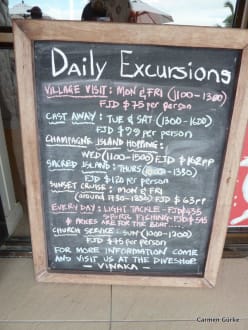 Daily Excursions
VILLAGE VISIT: MON & FRI (1100-1300)
FJD $75 per person
CAST AWAY: TUE & SAT (1300-1600)
FJD $99 per person
CHAMPAGNE ISLAND HOPPING:
WED (1100-1500) FJD $162pp
SACRED ISLAND: THURS -1330)
FJD $120 per person
SUNSET CRUISE: MON & FRI
(around 1730-1830) FJD $63pp
EVERYDAY: LIGHT TACKLE -FJD$435
SPORT FISHING-FJD$545
* PRICES ARE FOR THE BOAT....
CHURCH SERVICE: SUN (1000-1200)
FJD $45 per person
FOR MORE INFORMATION COME
AND VISIT US AT THE DIVESHOP
- VINAKA -
Carmen Gürke